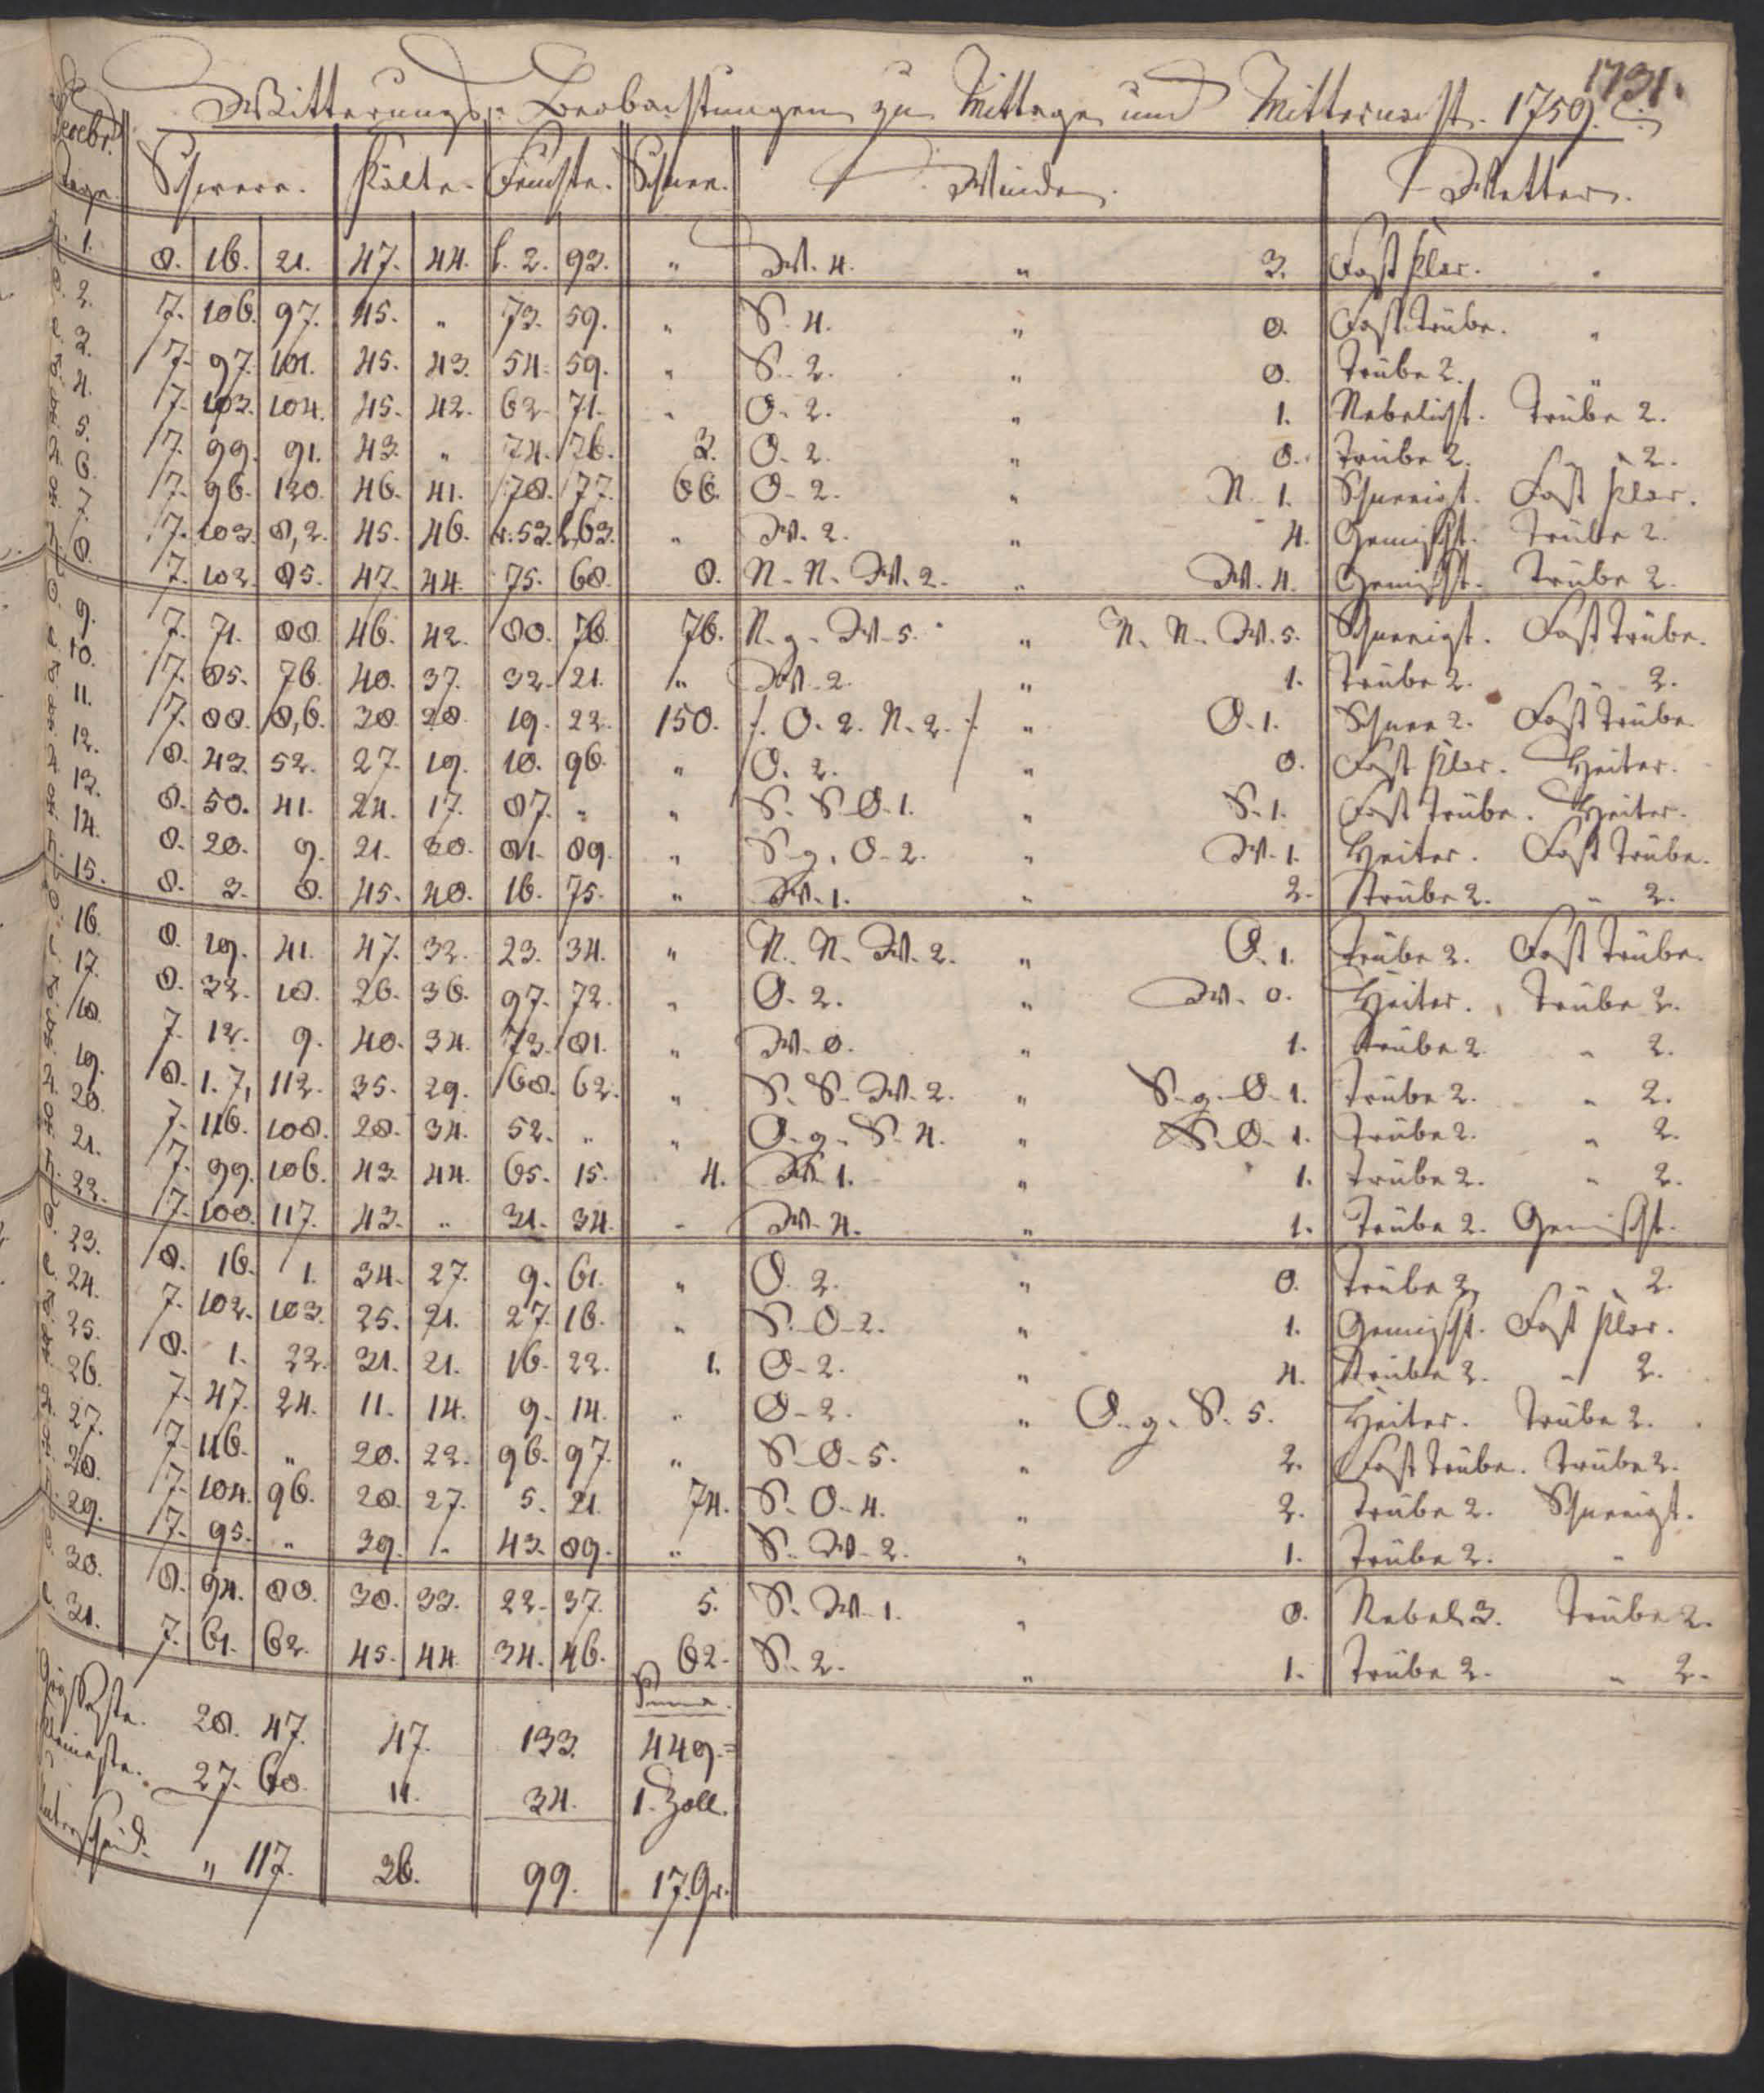 1731.
Witterungs-Beobachtungen zu Mittage und Mitternacht. 1759.
Decbr.
Tage. Schwere. Kälte. Feuchte. Schnee. Winde. Wetter.
1. 8. 16. 21. 47. 44. f. 2. 93. " W. 4. " 3. Fast klar. "
2. 7. 106. 97. 45. " 73. 59. " S. 4. " 0. Fast trübe. "
3. 7. 97. 101. 45. 43. 54. 59. " S. 2. " 0. Trübe 2. "
4. 7. 103. 104. 45. 42. 62. 71. " O. 2. " 1. Nebelicht. Trübe 2.
5. 7. 99. 91. 43. " 74. 76. 3. O. 2. " 0. Trübe 2. " 2.
6. 7. 96. 120. 46. 41. 78. 77. 66. O. 2. " N. 1. Schneeigt. Fast klar.
7. 7. 103. 8,2. 45. 46. 53. 63. " W. 2. " 4. Gemischt. Trübe 2.
8. 7. 102. 85. 47. 44. 75. 68. 8. N. N. W. 2. " W. 4. Gemischt. Trübe 2.
9. 7. 71. 88. 46. 42. 80. 76. 76. N. g. W. 5. " N. N. W. 5. Schneeigt. Fast trübe.
10. 7. 85. 76. 40. 37. 32. 21. " W. 2. " 1. Trübe 2. " 2.
11. 7. 88. 8,6. 38. 28. 19. 22. 150. /. O. 2. N. 2. / " O. 1. Schnee 2. Fast trübe.
12. 8. 43. 52. 27. 19. 18. 96. " O. 2. " 0. Fast klar. Heiter.
13. 8. 50. 41. 24. 17. 87. " " S. S. O. 1. " S. 1. Fast trübe. Heiter.
14. 8. 20. 9. 21. 30. 81. 89. " S. g. O. 2. " W. 1. Heiter. Fast trübe.
15. 8. 3. 8. 45. 40. 16. 75. " W. 1. " 2. Trübe 2. " 2.
16. 8. 19. 41. 47. 32. 23. 34. " N. N. W. 2. " O. 1. Trübe 2. Fast trübe.
17. 8. 32. 18. 26. 36. 97. 72. " O. 2. " W. 0. Heiter. Trübe 2.
18. 7. 12. 9. 40. 34. 73. 81. " W. 0. " 1. Trübe 2. " 2.
19. 8. 1. 7, 112. 35. 29. 68. 62. " S. S. W. 2. " S. g. O. 1. Trübe 2. " 2.
20. 7. 116. 108. 28. 34. 52. " " O. g. S. 4. " S. O. 1. Trübe 2. " 2.
21. 7. 99. 106. 43. 44. 65. 15. 4. W. 1. " 1. Trübe 2. " 2.
22. 7. 100. 117. 43. " 31. 34. " W. 4. " 1. Trübe 2. Gemischt.
23. 8. 16. 1. 34. 27. 9. 61. " O. 2. " 0. Trübe 2. " 2.
24. 7. 102. 103. 25. 21. 27. 16. " S. O. 2. " 1. Gemischt. Fast klar.
25. 8. 1. 22. 31. 21. 16. 22. 1. O. 2. " 4. Trübe 2. " 2.
26. 7. 47. 24. 11. 14. 9. 14. " O. 2. " O. g. S. 5. Heiter. Trübe 2.
27. 7. 116. " 20. 22. 96. 97. " S. O. 5. " 2. Fast trübe. Trübe 2.
28. 7. 104. 96. 28. 27. 5. 21. 74. S. O. 4. " 2. Trübe 2. Schneeigt.
29. 7. 95. " 39. " 43. 89. " S. W. 2. " 1. Trübe 2. "
30. 8. 94. 88. 38. 33. 22. 37. 5. S. W. 1. " 0. Nebel 3. Trübe 2.
31. 7. 61. 62. 45. 44. 34. 46. 62. S. 2. " 1. Trübe 2. " 2.
Summa.
Größeste. 28. 47. 47. 133. 449.=
Kleineste. 27. 60. 11. 34. 1. Zoll.
Unterscheid. " 117. 36. 99. 17. Gr.